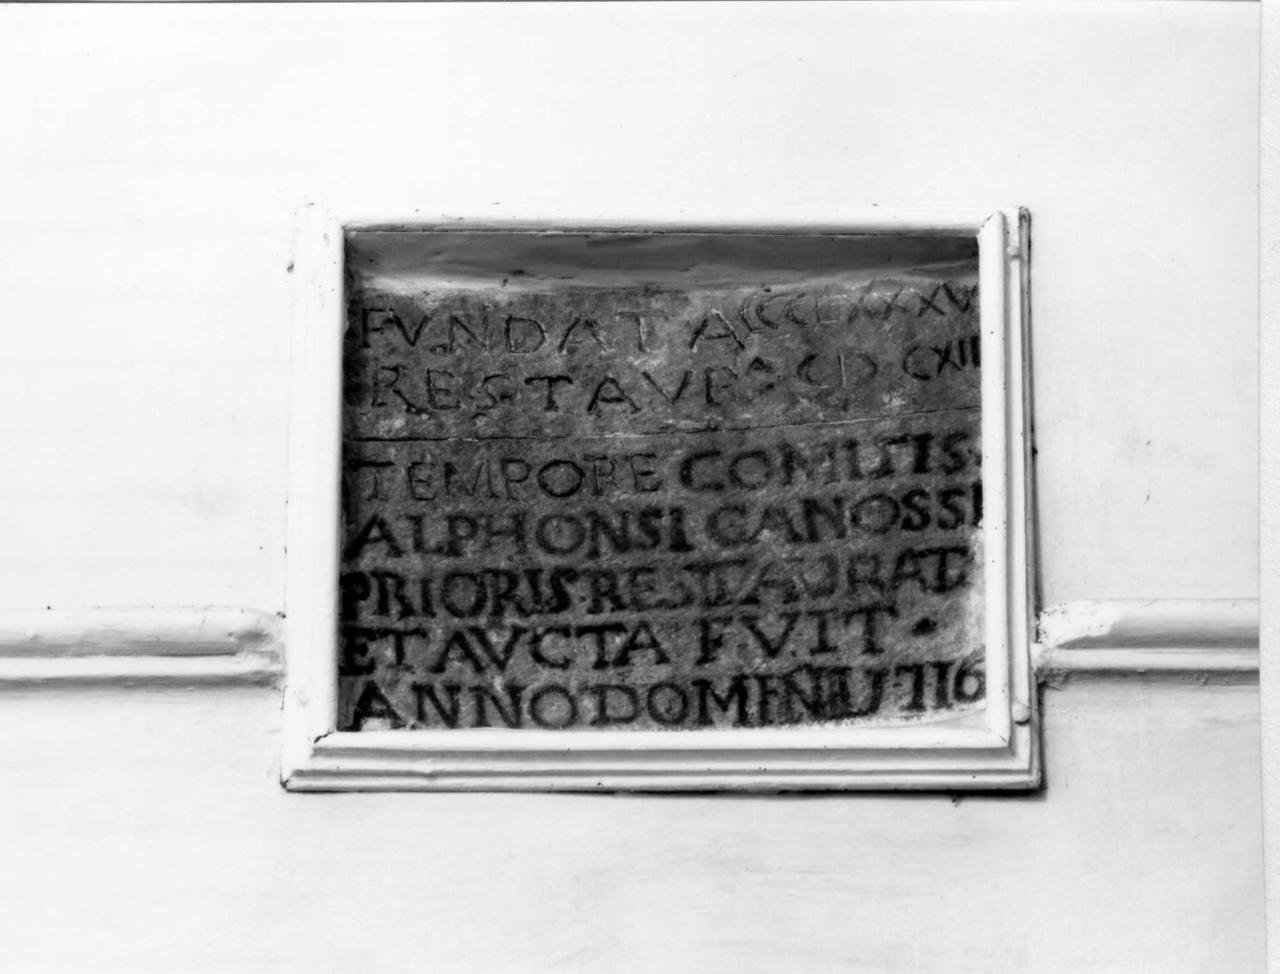 FV.NDAT A CCCCLXXXV
RESTAVR
TEMPORE COMITIS
ALPHONSI CANOSSI
PRIORIS RESTAURATA
ET AVCTA F.V.IT
ANNO DOMINI